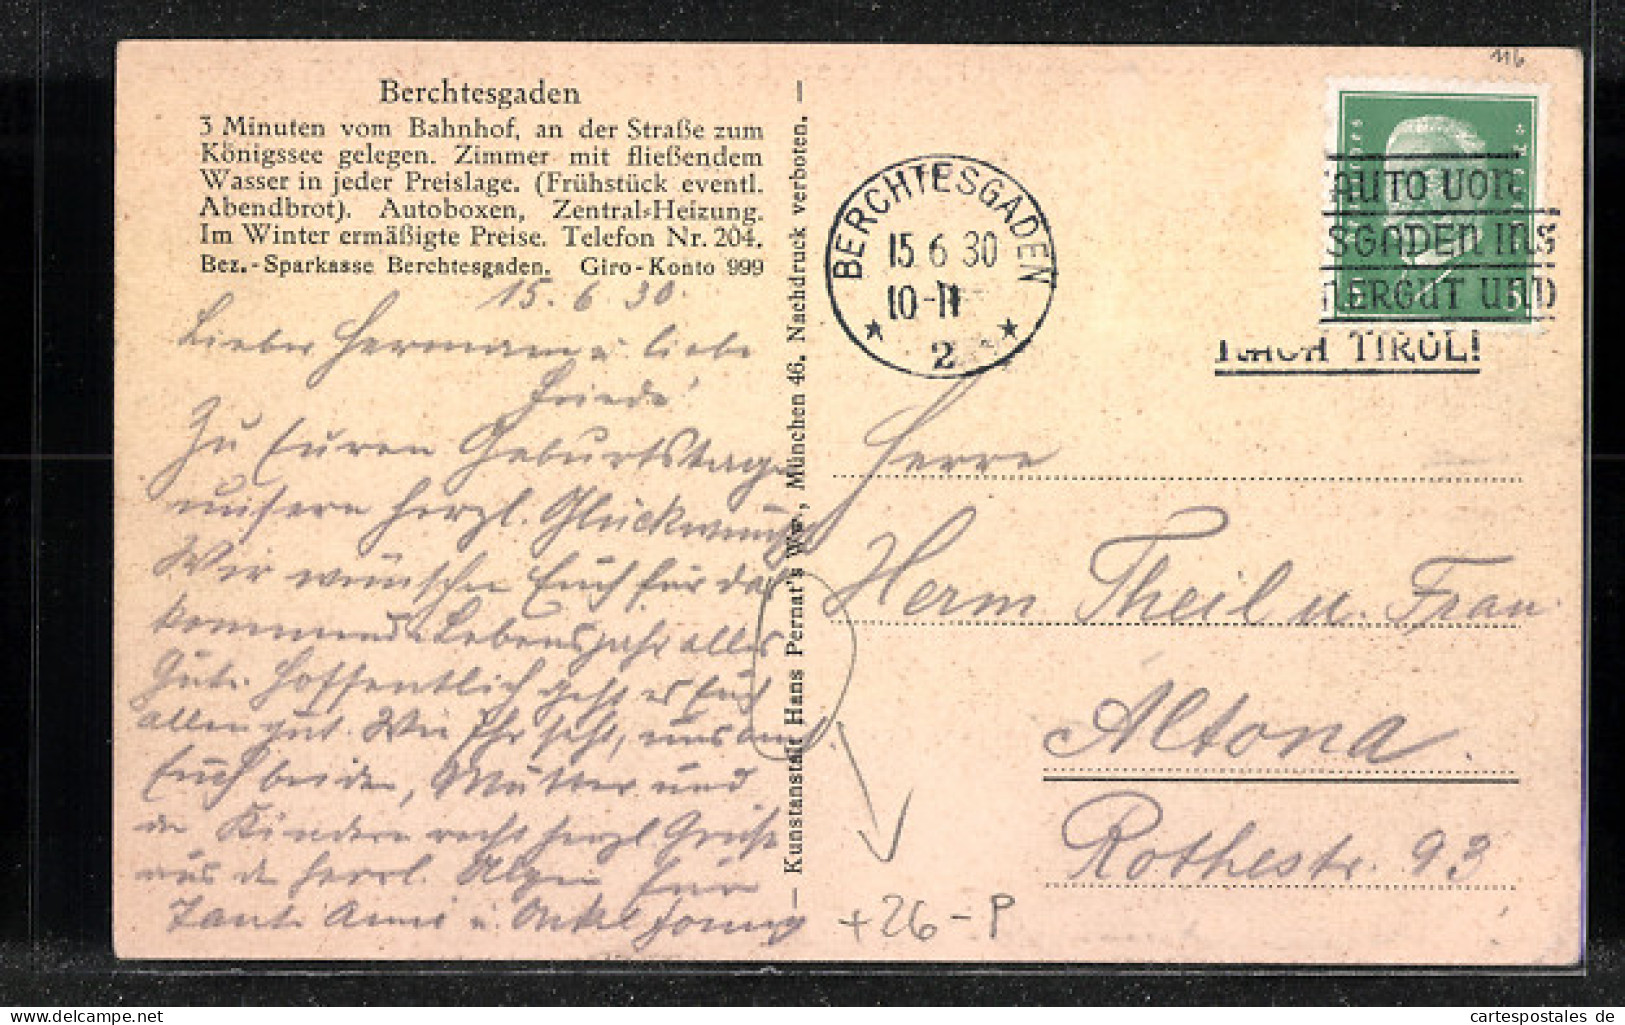 Berchtesgaden
3 Minuten vom Bahnhof, an der Straße zum
Königssee gelegen. Zimmer mit fließendem
Wasser in jeder Preislage. (Frühstück eventl.
Abendbrot). Autoboxen, Zentral-Heizung.
Im Winter ermäßigte Preise. Telefon Nr. 204.
Bez.-Sparkasse Berchtesgaden. Giro-Konto 999
15. 6. 30.
Lieber Hermann u. liebe
Friede!
Zu Euren Geburtstage
unsern herzl. Glückwunsch
Wir wünschen Euch für das
kommende Lebensjahr alles
Gute. Hoffentlich geht es Euch
allen gut. Wie Ihr seht, uns auch.
Euch beiden, Mutter und
den Kindern recht herzl. Grüße
aus d. herrl. Alpen
Tante Anni u. Onkel
— Kunstanstalt Hans Pernat's Ww., München 46. Nachdruck verboten. —
BERCHTESGADEN
15 6 30
10-11
2
116
AUTO VON
SGADEN INS
MERGUT UND
NACH TIROL!
Herrn
Herm. Theil u. Frau
Altona.
Rothestr. 93
+26-P
delcampe.net
cartespostales de